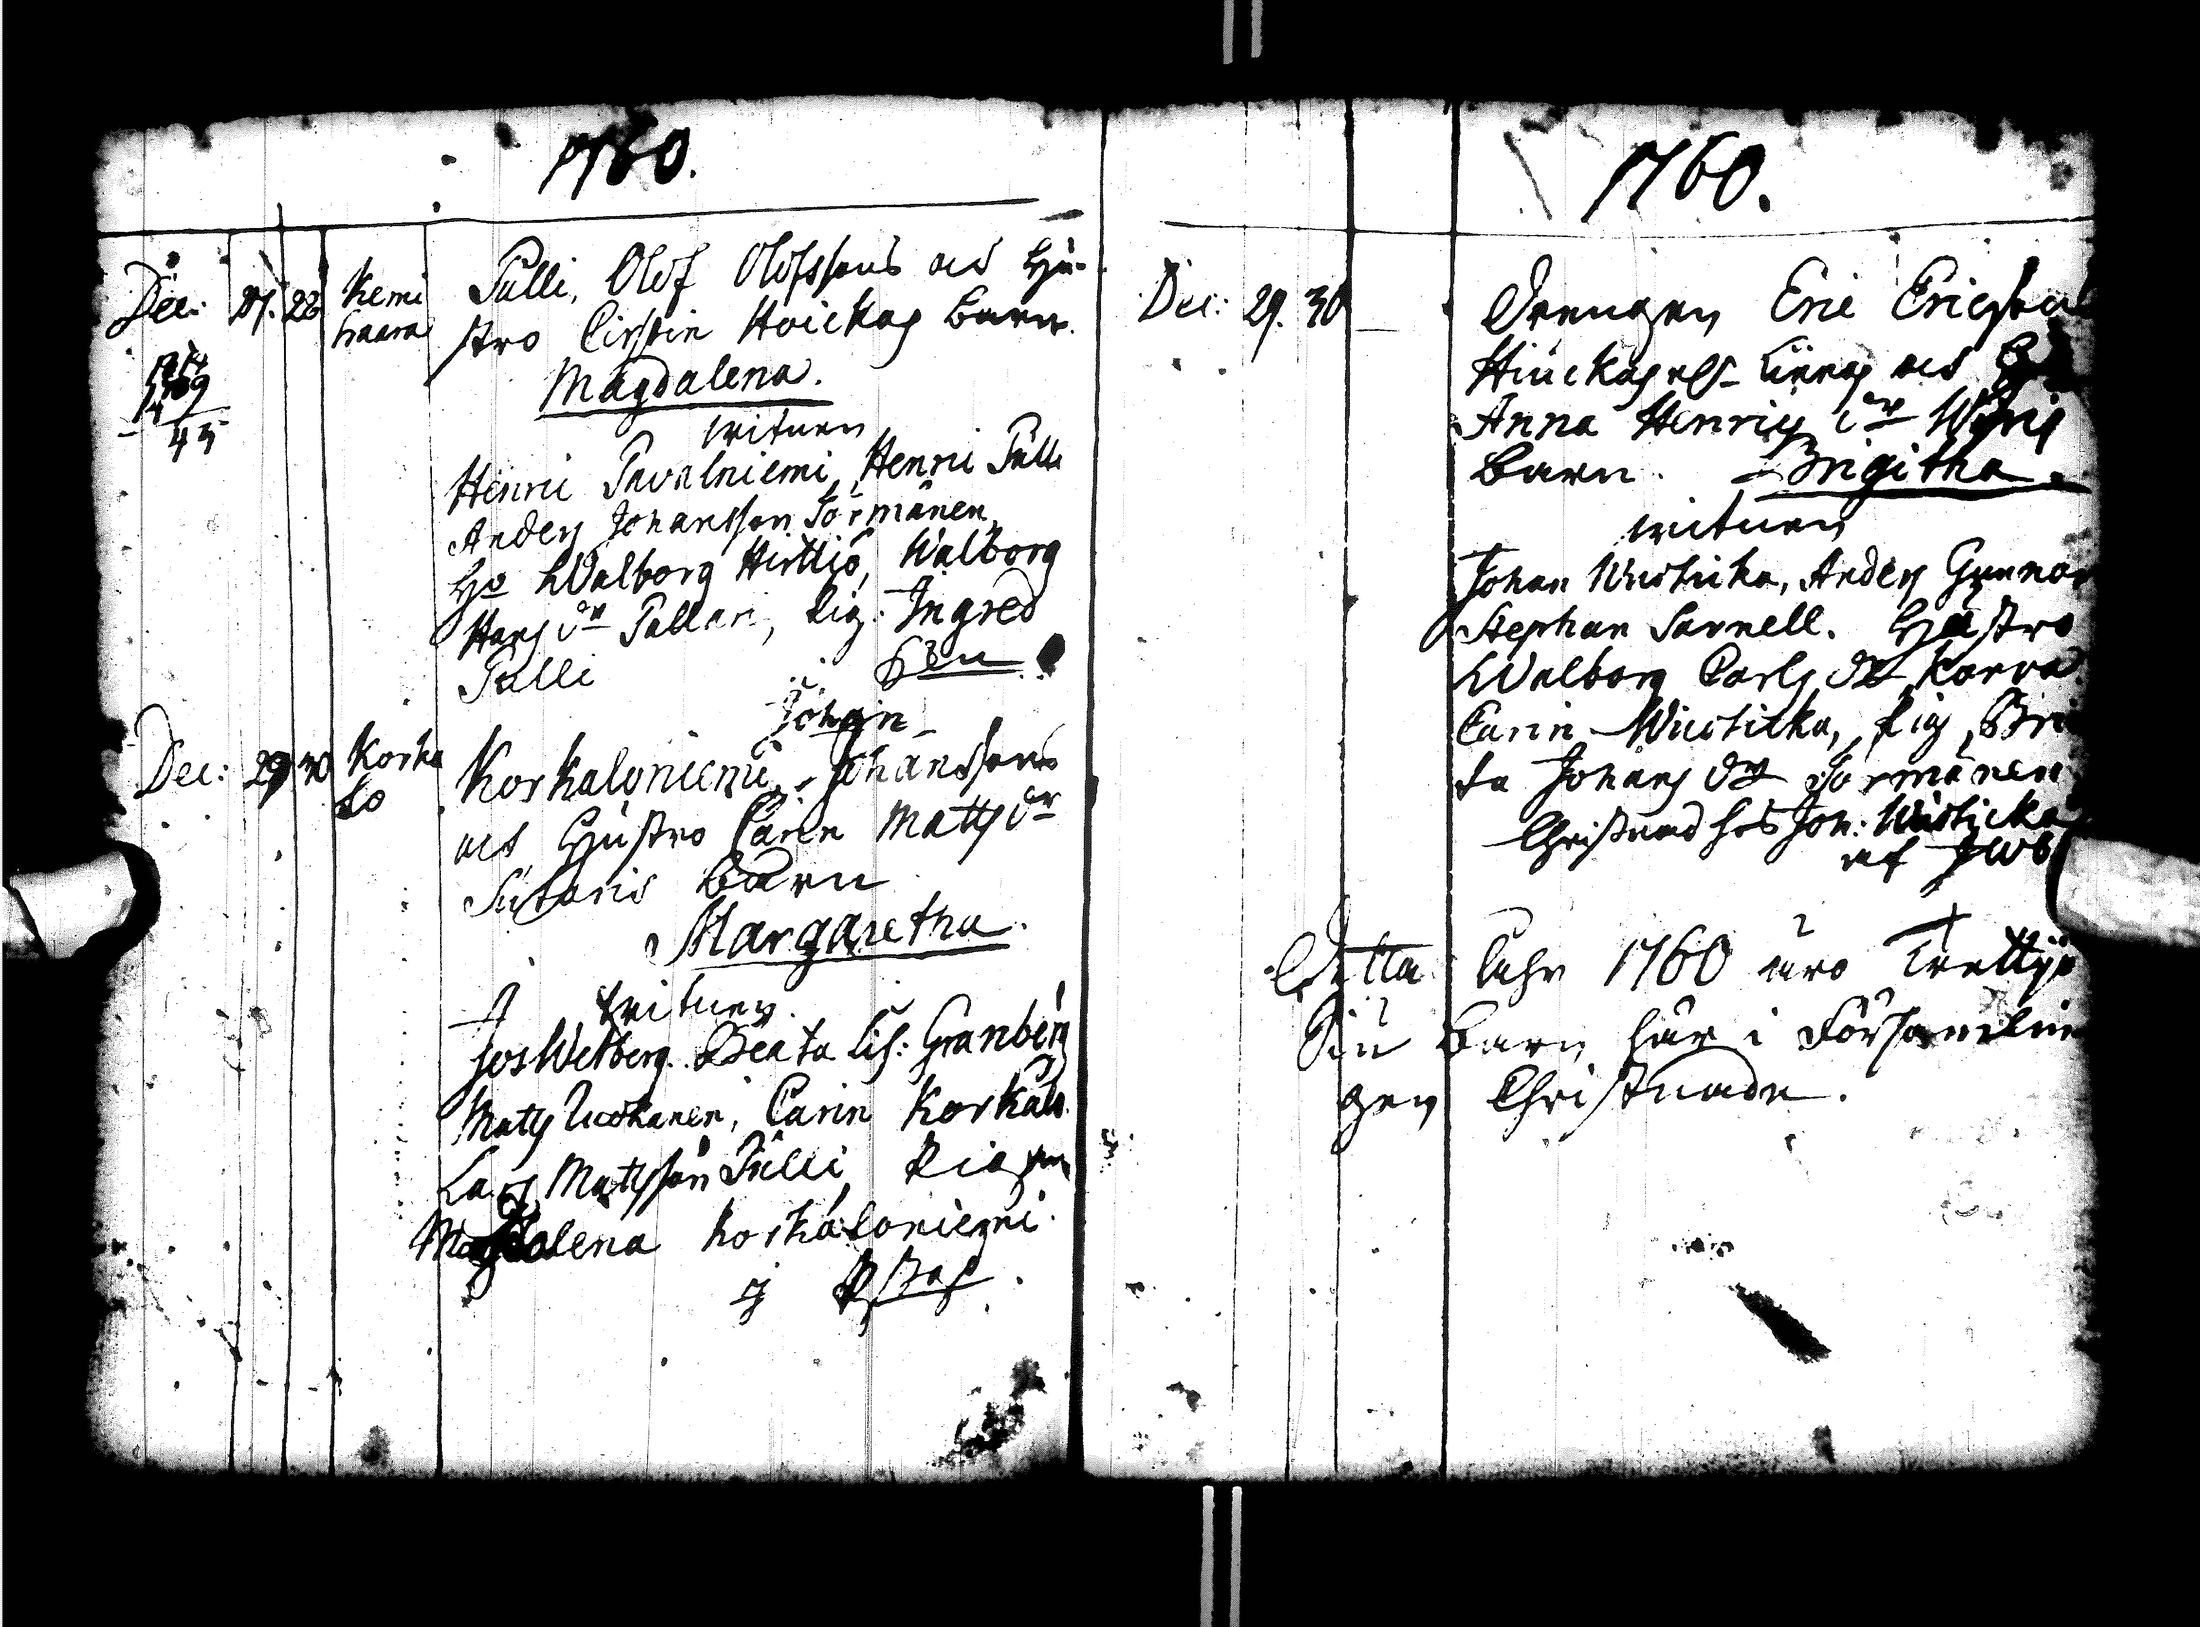 1760.
Dec: 27. 28 Kemi haara
Pulli, Olof Olofssons och Hu-
stro Cirstin Hoickas Barn.
Magdalena.
Witnen
Henric Pavalniemi, Henric Pulli
Anders Johansson Tormänen
Ho Walborg Hirttiö, Walborg
Hans dr Pallari, Pig. Ingred
Pulli
Dec: 29 30 Korka lo
Johan
Korkaloniemi, Johanssons
och Hustro Carin Matts dr
Sutaris Barn
Margaretha.
Witnen.
Jos Wetberg. Beata Lis: Granberg
Matts Tuokanen, Carin Korkalo.
Lars Mattsson Pulli, Pigan
Magdalena Korkaloniemi.
1760.
Dec: 29. 30
Drengen Eric Ericsson
och
Anna Henrics dr
Barn. Brigitha.
witnen
Johan Wiisticka, Anders Gunnar
Stephan Sarnell. Hustro
Walborg Carls dr Korva
Carin Wiisticka, Pig. Bri
ta Johans dr Tormänen
Christnad hos Joh: Wiisticka
af
Detta Åhr 1760 äro Trettijo
Siu Barn här i Församlin
gen Christnade.